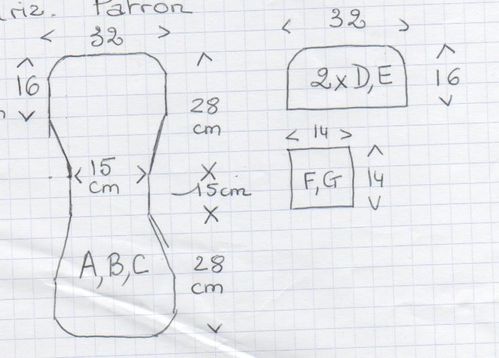 riz. Patron
32
16
28
cm
15
cm
15cm
A, B, C
28
cm
32
2xD, E
16
14
F, G
14